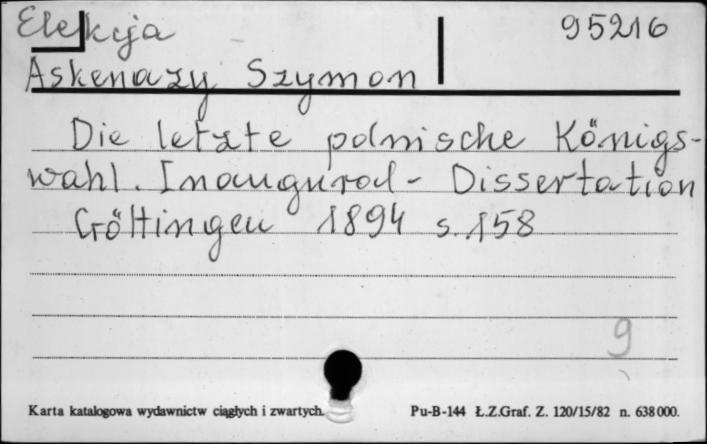 Elekcja 95216
Askenazy Szymon
Die letzte polnische Königs-
wahl. Inaugural - Dissertation
Göttingen 1894 s. 158
9
Karta katalogowa wydawnictw ciągłych i zwartych. Pu-B-144 Ł.Z.Graf. Z. 120/15/82 n. 638000.